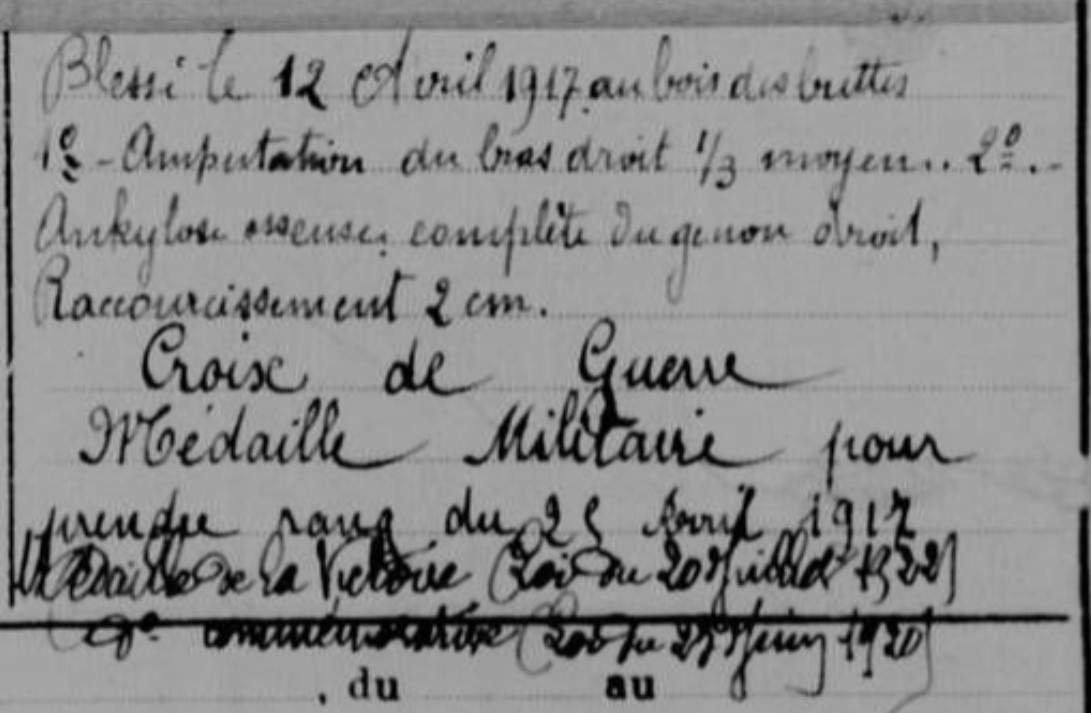 Blessé le 12 Avril 1917 au bois des buttes
1º - Amputation du bras droit 1/3 moyen.. 2º.-
Ankylose osseuse, complète du genou droit,
Raccourcissement 2 cm.
Croix de Guerre
Médaille Militaire pour
prendre rang du 25 Avril 1917
Médaille de la Victoire (Loi du 20 Juillet 1922)
dº commémorative (Loi du 23 Juin 1920)
, du au